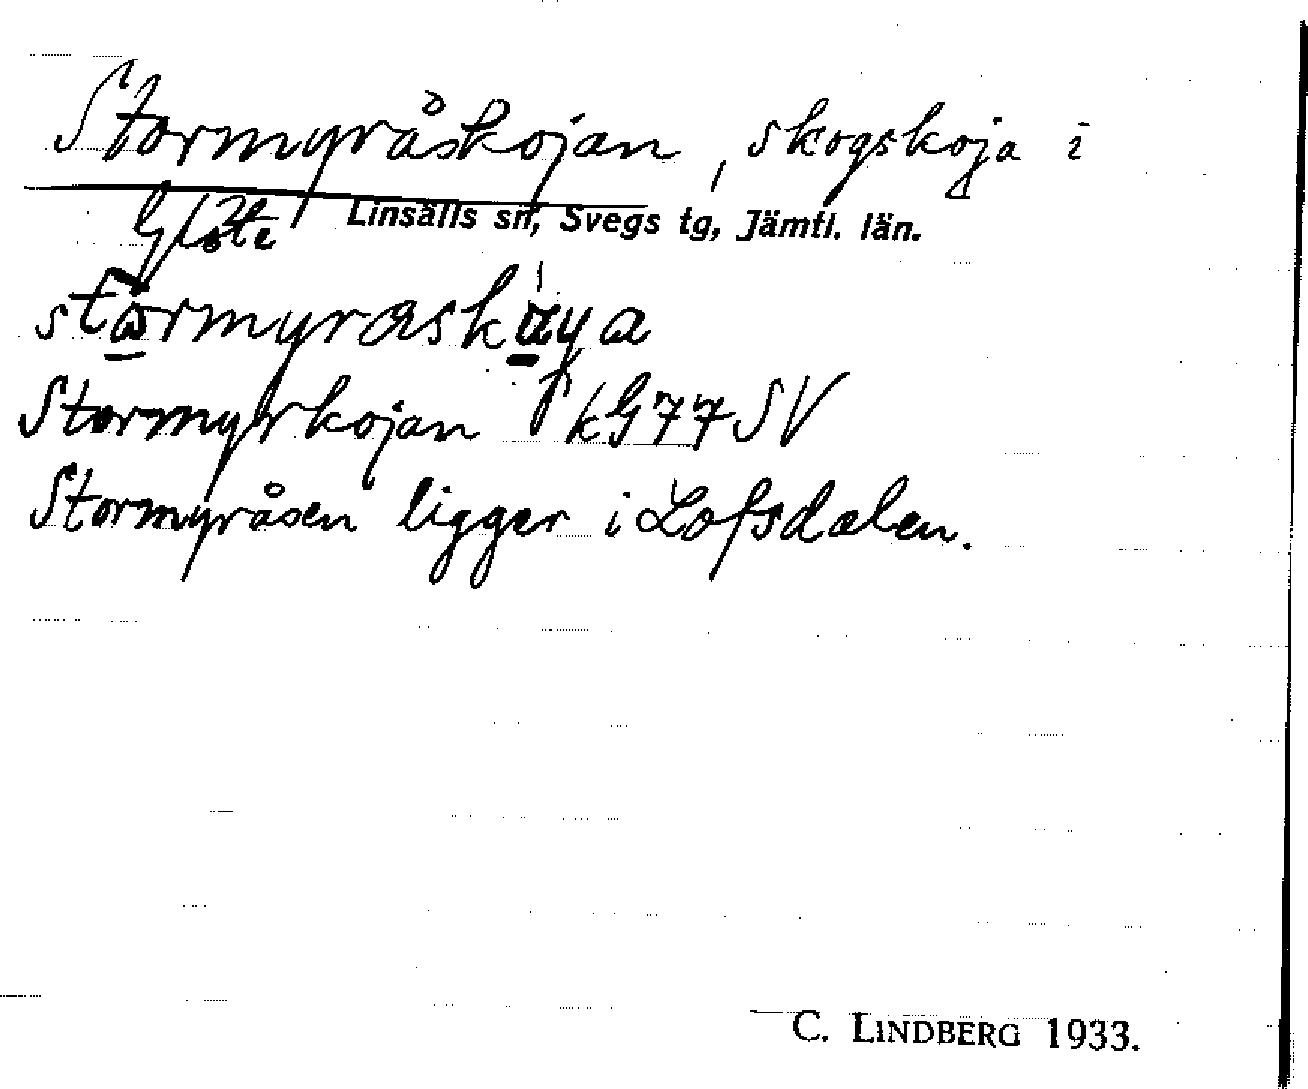 Stormyråskojan, skogskoja i
Glöte Linsälls sn, Svegs tg, Jämtl. län.
Stormyrkojan kG 77 SV
Stormyråsen ligger i Lofsdalen.
C. LINDBERG 1933.